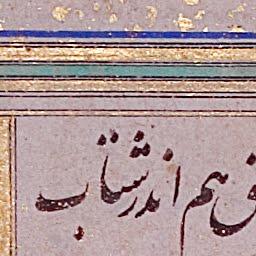 هم اندر شتاب